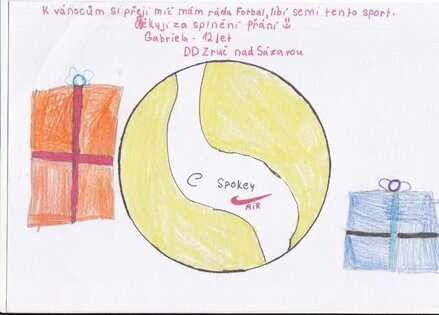 K vánocům si přeji míč mám ráda Fotbal, líbí semi tento sport.
Děkuji za splnění přání
Gabriela - 12 let
DD Zruč nad Sázavou
C Spokey
AiR